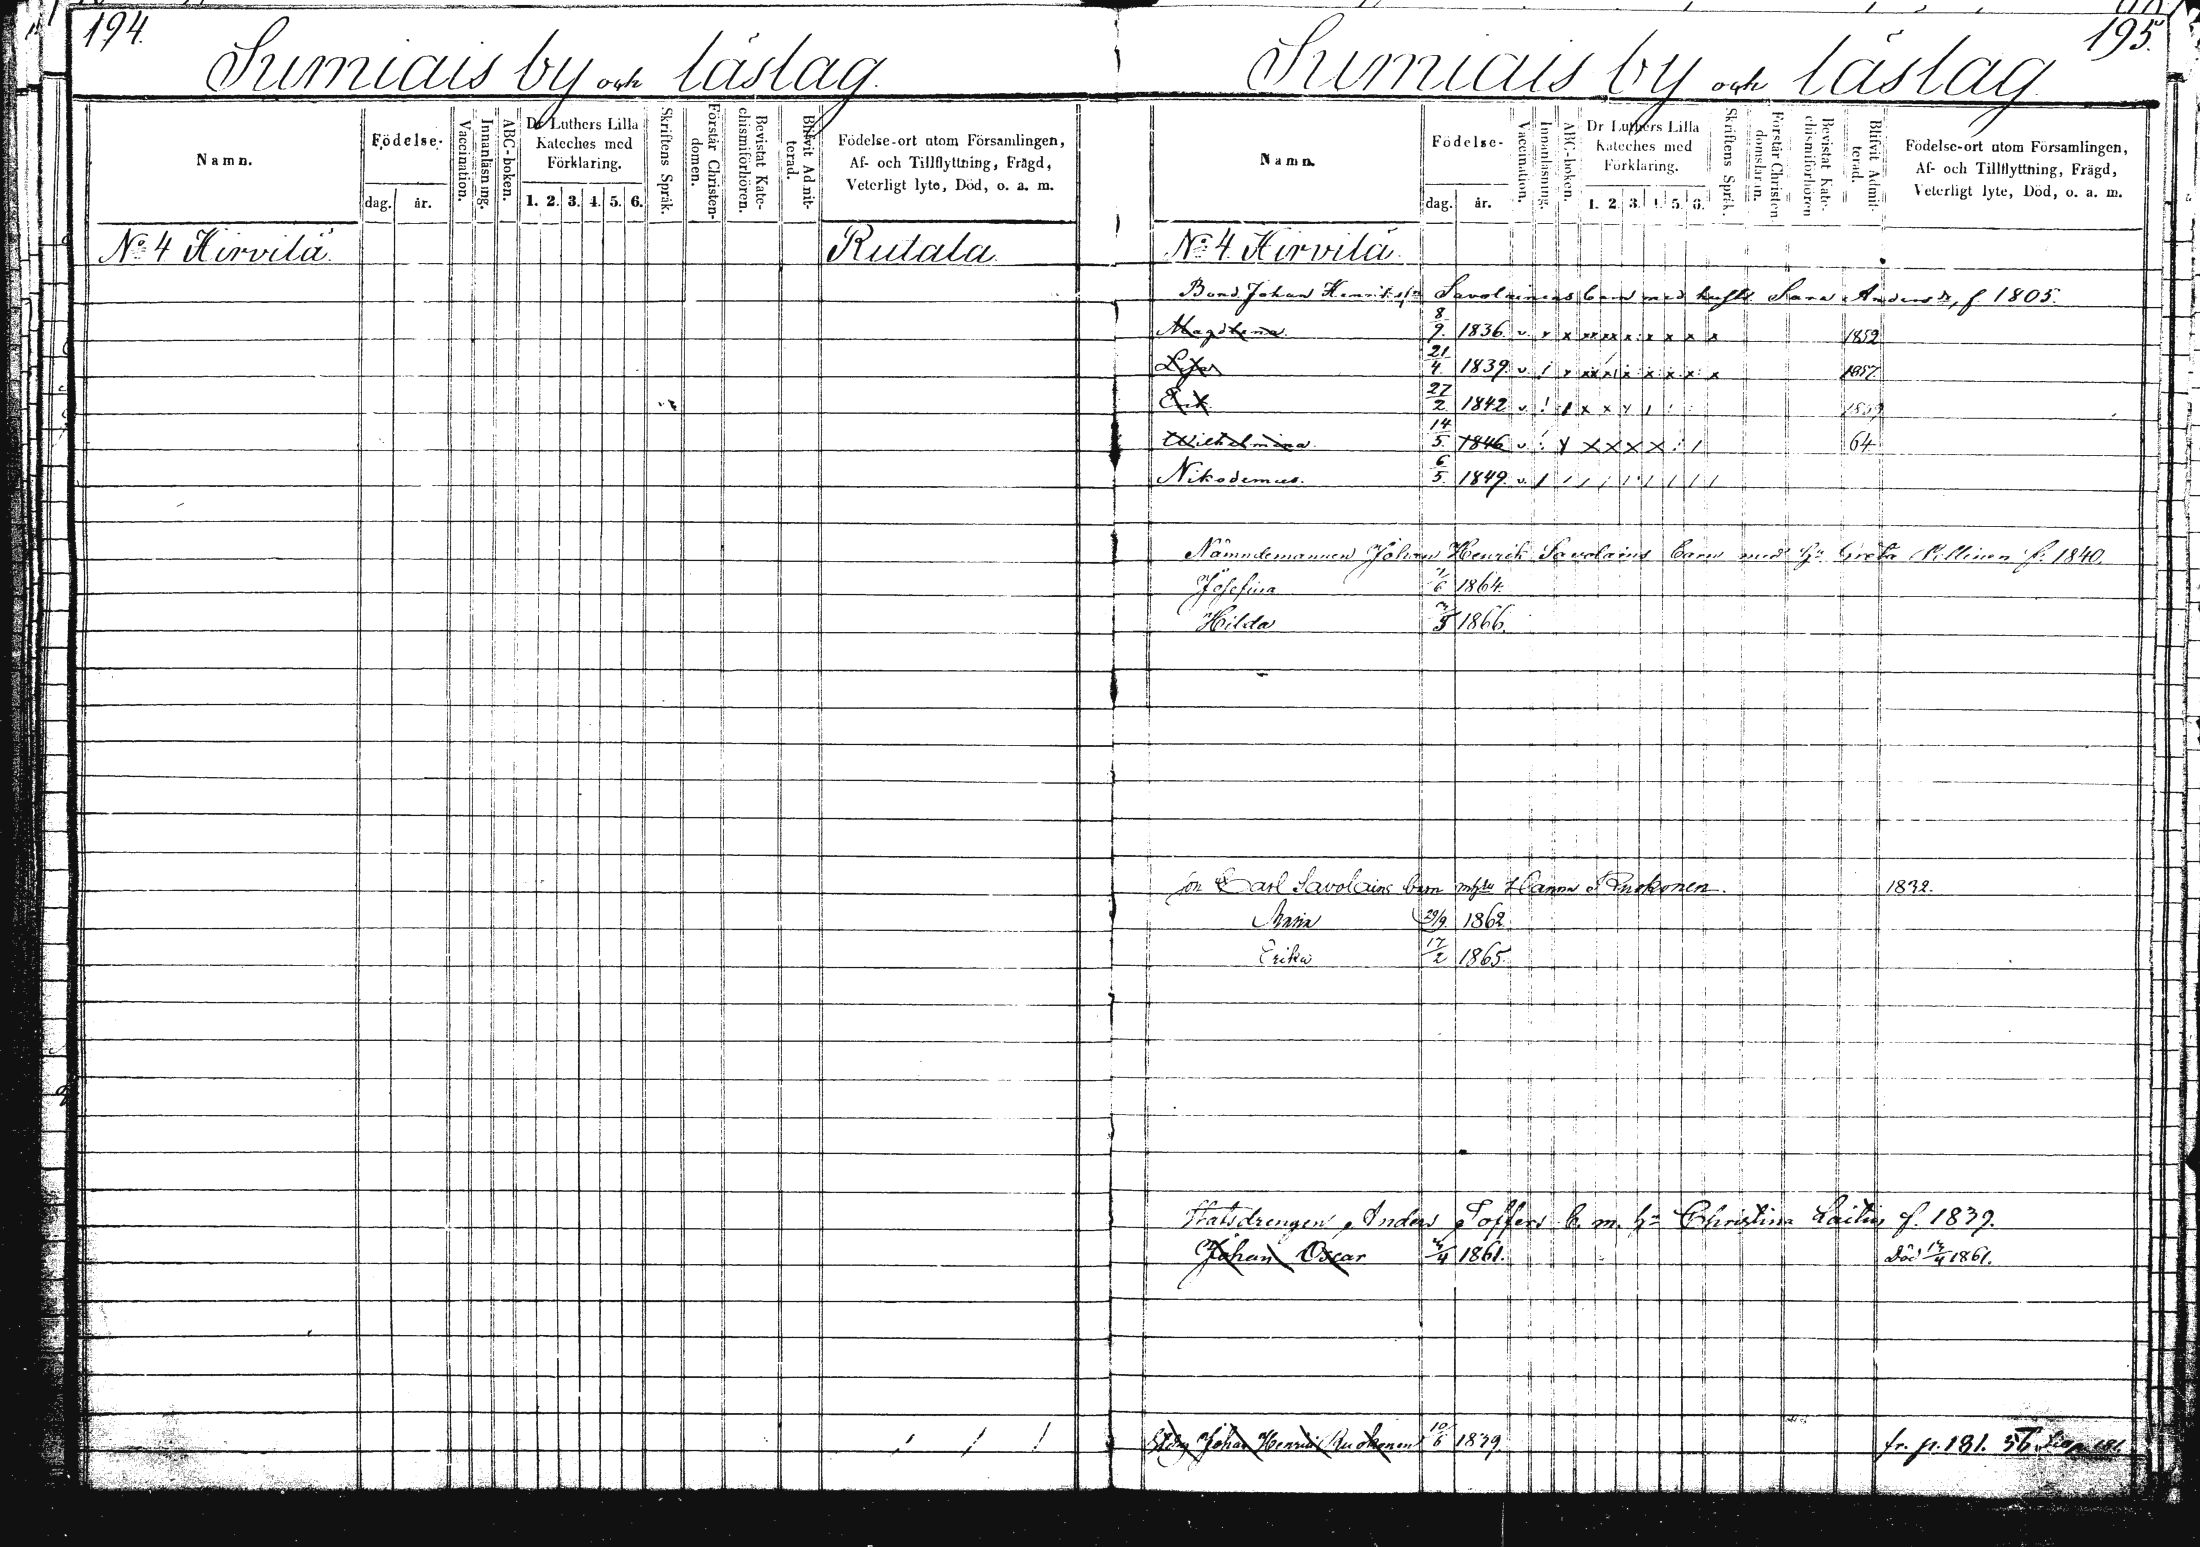 194.
Sumiais by och läslag.
Namn.
Födelse-
dag. år.
Vaccination.
Innanläsning.
ABC-boken.
Dr Luthers Lilla Kateches med Förklaring.
1. 2. 3. 4. 5. 6.
Skriftens Språk.
Förstår Christendomen.
Bevistat Katechismiförhören.
Blifvit Admitterad.
Födelse-ort utom Församlingen,
Af- och Tillflyttning, Frägd,
Veterligt lyte, Död, o. a. m.
No 4 Hirvilä. Rutala.
195.
Sumiais by och läslag.
Namn.
Födelse-
dag. år.
Vaccination.
Innanläsning.
ABC-boken.
Dr Luthers Lilla Kateches med Förklaring.
1. 2. 3. 4. 5. 6.
Skriftens Språk.
Förstår Christendomsläran.
Bevistat Katechismiförhören
Blifvit Admitterad.
Födelse-ort utom Församlingen,
Af- och Tillflyttning, Frägd,
Veterligt lyte, Död, o. a. m.
No 4. Hirvilä.
Bond. Johan Henrik Savolainens barn med Sara Andersdr, f 1805.
Magdlena. 8/9 1836. v. x x xx xx x x x x x x 1852
21/4 1839. v. 1857.
Erik 27/2 1842 v.
Wilhelmina 14/5 1846 v. 64
Nikodemus. 6/5 1849. v.
Nämndemannen Johan Henrik Savolains barn med Greta Pillinen f. 1840.
Josefina 1864.
Hilda 1866.
Carl Savolains barn Hanna Ruokonen. 1832.
Maria 29/9. 1862
Erika 17/2 1865.
Statsdrengen Anders Toffers b. m. h Christina Laitin f. 1839.
Johan Oscar 1861. Död 1861.
Johan Henrik Ruokonen 10/6 1839. fr. p. 181.